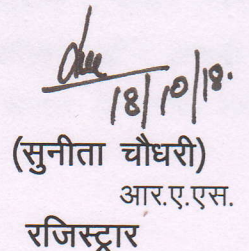 18/10/18.
(सुनीता चौधरी)
आर.ए.एस.
रजिस्ट्रार